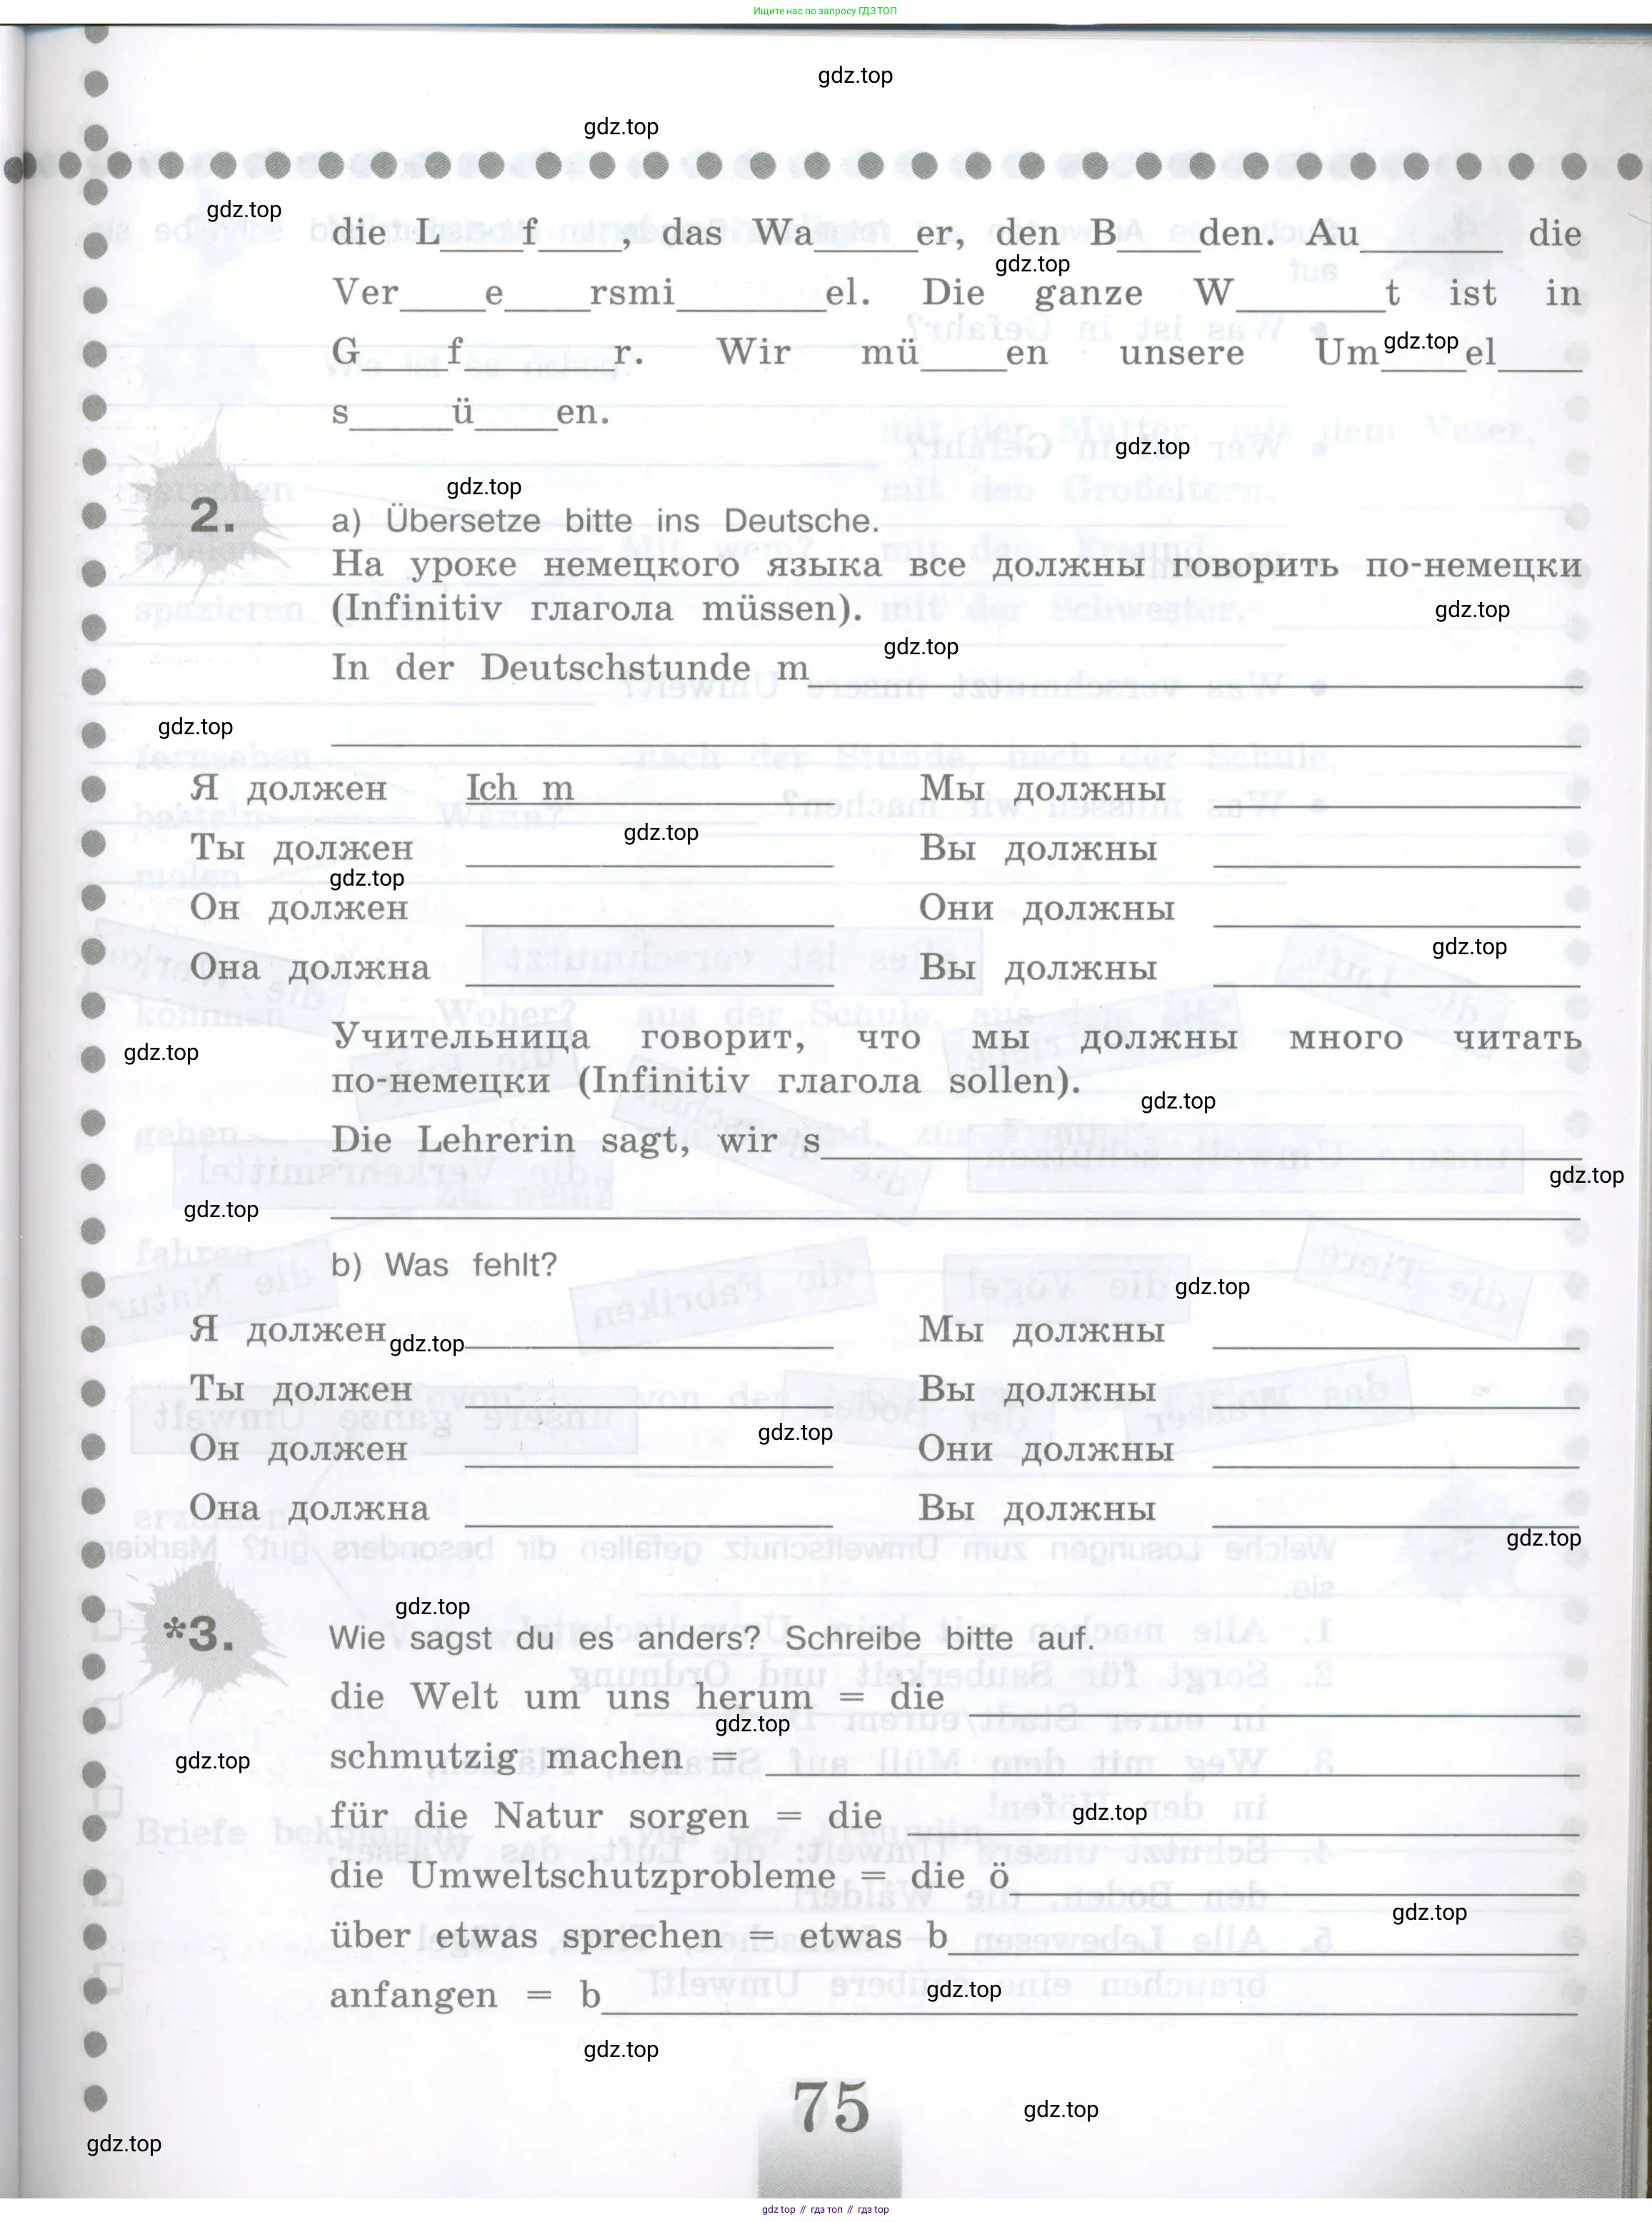 Ищите нас по запросу ГДЗ ТОП
gdz.top
gdz.top
gdz.top
die L____f____, das Wa_____er, den B____den. Au_______ die
gdz.top
Ver____e____rsmi_______el. Die ganze W_______t ist in
G____f_______r. Wir mü____en unsere Um____el____
gdz.top
s_____ü____en.
gdz.top
gdz.top
2. a) Übersetze bitte ins Deutsche.
На уроке немецкого языка все должны говорить по-немецки
(Infinitiv глагола müssen).
gdz.top
gdz.top
In der Deutschstunde m____
gdz.top
Я должен Ich m____ Мы должны ____
gdz.top
Ты должен ____ Вы должны ____
gdz.top
Он должен ____ Они должны ____
gdz.top
Она должна ____ Вы должны ____
Учительница говорит, что мы должны много читать
gdz.top
по-немецки (Infinitiv глагола sollen).
gdz.top
Die Lehrerin sagt, wir s____
gdz.top
gdz.top
b) Was fehlt?
gdz.top
Я должен ____ Мы должны ____
gdz.top
Ты должен ____ Вы должны ____
gdz.top
Он должен ____ Они должны ____
Она должна ____ Вы должны ____
gdz.top
gdz.top
*3. Wie sagst du es anders? Schreibe bitte auf.
die Welt um uns herum = die ____
gdz.top
schmutzig machen = ____
gdz.top
für die Natur sorgen = die ____
gdz.top
die Umweltschutzprobleme = die ö____
gdz.top
über etwas sprechen = etwas b____
gdz.top
anfangen = b____
gdz.top
75
gdz.top
gdz.top
gdz top // гдз топ // гдз top